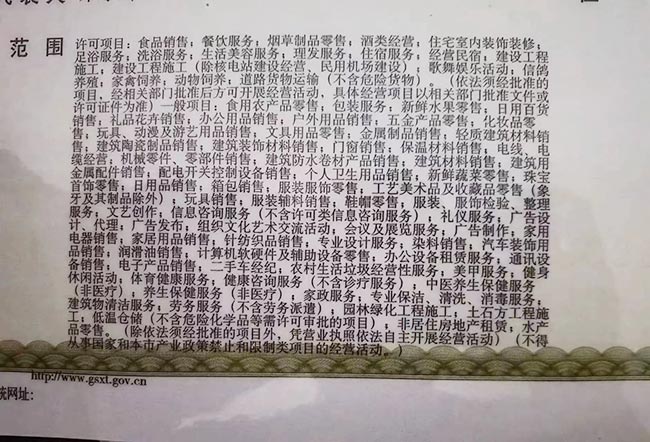 范围
许可项目：食品销售；餐饮服务；烟草制品零售；酒类经营；住宅室内装饰装修；
足浴服务；洗浴服务；生活美容服务；理发服务；住宿服务；经营民宿；建设工程
施工；建设工程施工（除核电站建设经营、民用机场建设）；歌舞娱乐活动；信鸽
养殖；家禽饲养；动物饲养；道路货物运输（不含危险货物）。（依法须经批准的
项目，经相关部门批准后方可开展经营活动，具体经营项目以相关部门批准文件或
许可证件为准）一般项目：食用农产品零售；包装服务；新鲜水果零售；日用百货
销售；礼品花卉销售；办公用品销售；户外用品销售；五金产品零售；化妆品零
售；玩具、动漫及游艺用品销售；文具用品零售；金属制品销售；轻质建筑材料销
售；建筑陶瓷制品销售；建筑装饰材料销售；门窗销售；保温材料销售；电线、电
缆经营；机械零件、零部件销售；建筑防水卷材产品销售；建筑材料销售；建筑用
金属配件销售；配电开关控制设备销售；个人卫生用品销售；新鲜蔬菜零售；珠宝
首饰零售；日用品销售；箱包销售；服装服饰零售；工艺美术品及收藏品零售（象
牙及其制品除外）；玩具销售；服装辅料销售；鞋帽零售；服装、服饰检验、整理
服务；文艺创作；信息咨询服务（不含许可类信息咨询服务）；礼仪服务；广告设
计、代理；广告发布；组织文化艺术交流活动；会议及展览服务；广告制作；家用
电器销售；家居用品销售；针纺织品销售；专业设计服务；染料销售；汽车装饰用
品销售；润滑油销售；计算机软硬件及辅助设备零售；办公设备租赁服务；通讯设
备销售；电子产品销售；二手车经纪；农村生活垃圾经营性服务；美甲服务；健身
休闲活动；体育健康服务；健康咨询服务（不含诊疗服务）；中医养生保健服务
（非医疗）；养生保健服务（非医疗）；家政服务；专业保洁、清洗、消毒服务；
建筑物清洁服务；劳务服务（不含劳务派遣）；园林绿化工程施工；土石方工程施
工；低温仓储（不含危险化学品等需许可审批的项目）；非居住房地产租赁；水产
品零售。（除依法须经批准的项目外，凭营业执照依法自主开展经营活动）（不得
从事国家和本市产业政策禁止和限制类项目的经营活动。）
http://www.gsxt.gov.cn
统网址：